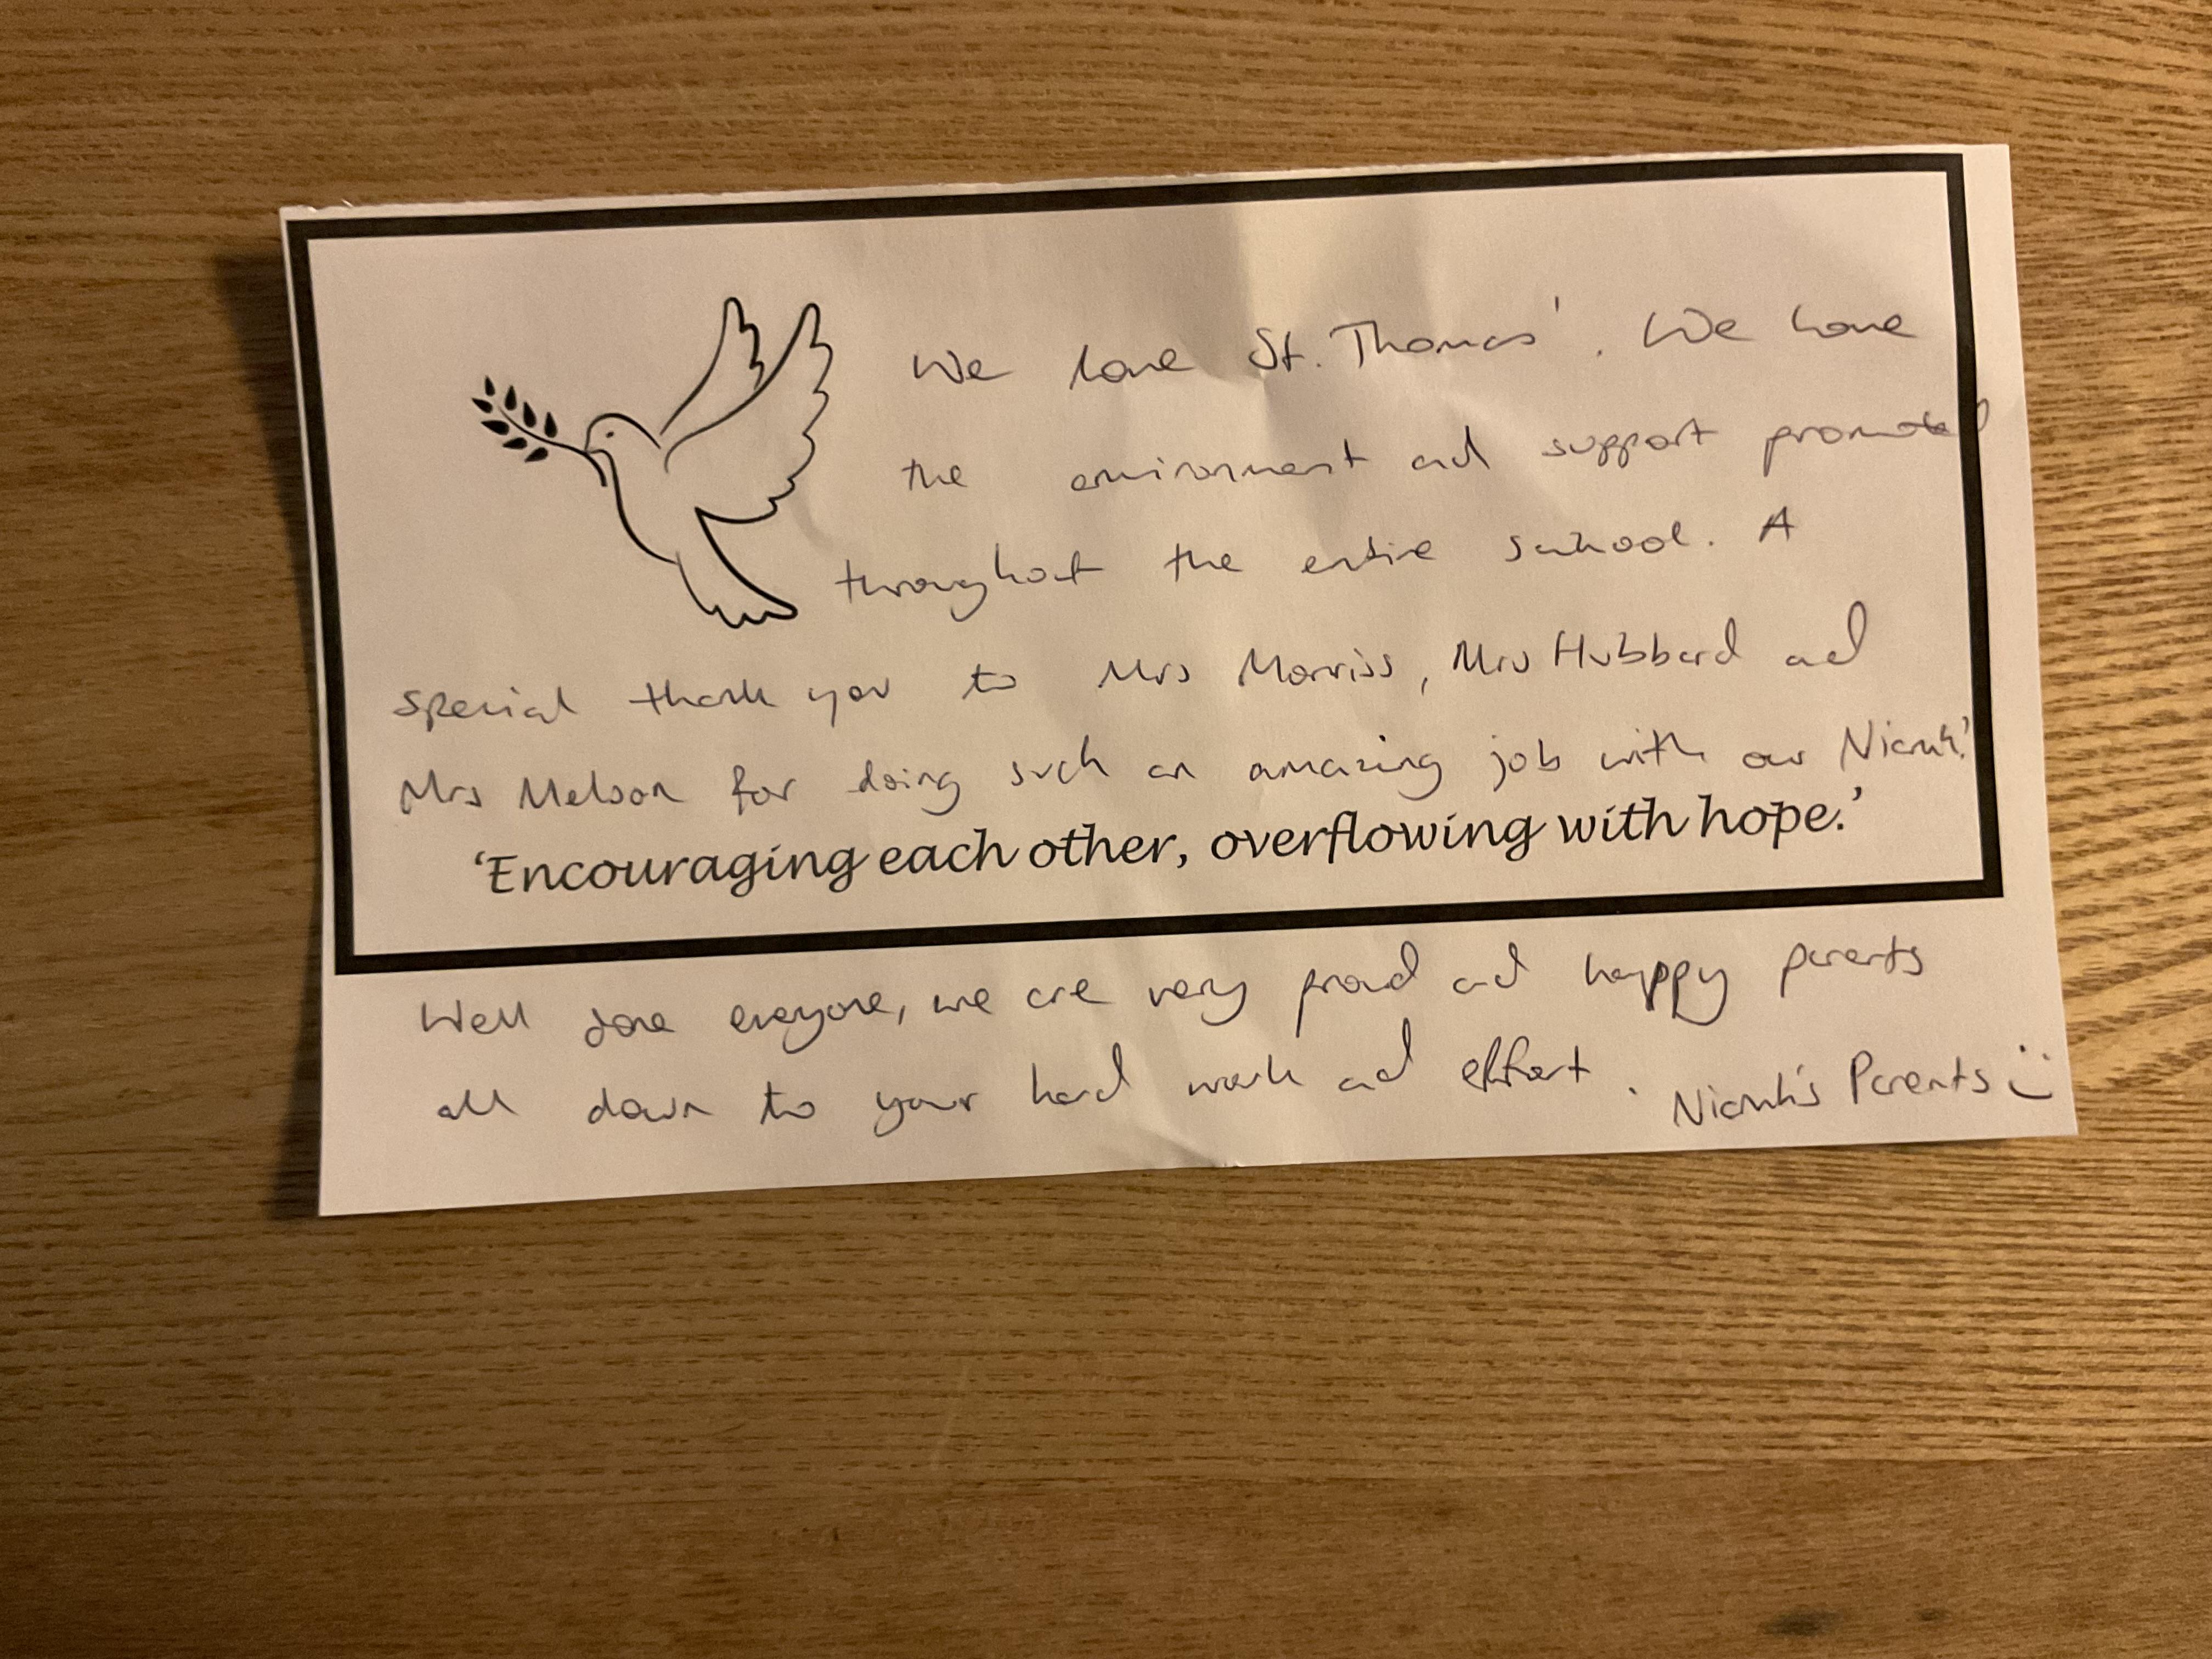 We love St. Thomas'. We love
the environment and support promoted
throughout the entire school. A
special thank you to Mrs Morriss, Mrs Hubbard and
Mrs for doing such an amazing job with our Niamh!
‘Encouraging each other, overflowing with hope.’
Well done everyone, we are very proud and happy parents
all down to your hard work and effort. Niamh's Parents :)